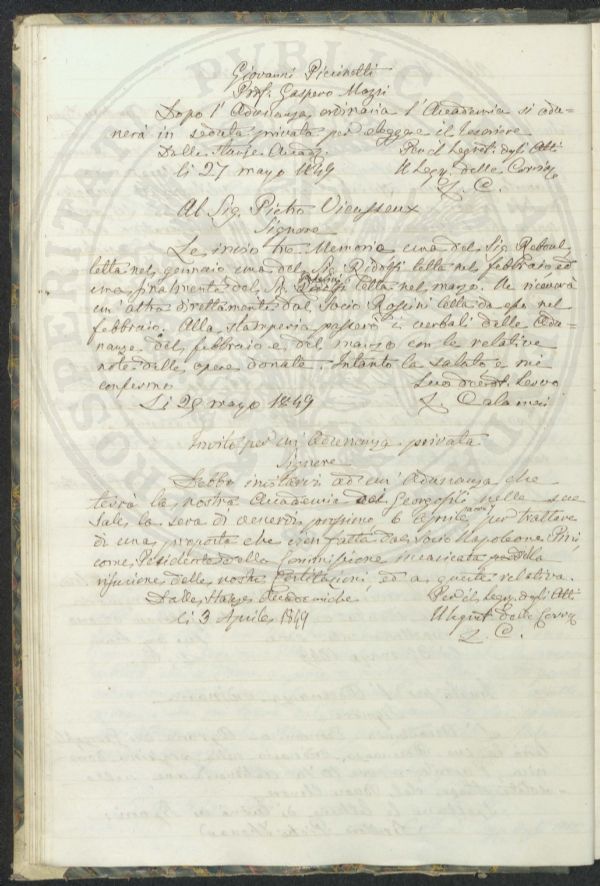 Giovanni Piccinelli
Prof. Gaspero Mazzi
Dopo l'Adunanza ordinaria l'Accademia si adu-
nerà in seduta privata per eleggere il Tesoriere
Dalle Stanze Accad.
Per il Segret. degli Atti
li 27 marzo 1849
Il Segr. delle Corrisp.
L. C.
Al Sig. Pietro Vieusseux
Signore
Le invio tre Memorie una del Sig. Reboul
letta nel gennaio una del Sig. Ridolfi letta nel febbraio ed
una finalmente del letta nel marzo. Ne riceverà
un'altra direttamente dal Socio Rossini letta da esso nel
febbraio. Alla stamperia passerò i verbali delle Adu-
nanze del febbraio e del marzo con le relative
note delle opere donate. Intanto la saluto e mi
confermo
Suo devot. Servo
Li 29 marzo 1849
L. Calamai
Invito per un'Adunanza privata
Signore
Debbo invitarvi ad un'Adunanza che
terrà la nostra Accademia dei Georgofili nelle sue
Sale, la sera di venerdì prossimo 6 Aprile per trattare
di una proposta che vien fatta dal Socio Napoleone Pini
come Presidente della Commissione incaricata della
rifusione delle nostre Costituzioni, ed a queste relativa.
Dalle Stanze Accademiche
Per il Segr. degli Atti
li 3 Aprile 1849
Il Segret. delle Corrisp.
L. C.
PROSPERITATI PUBLICAE